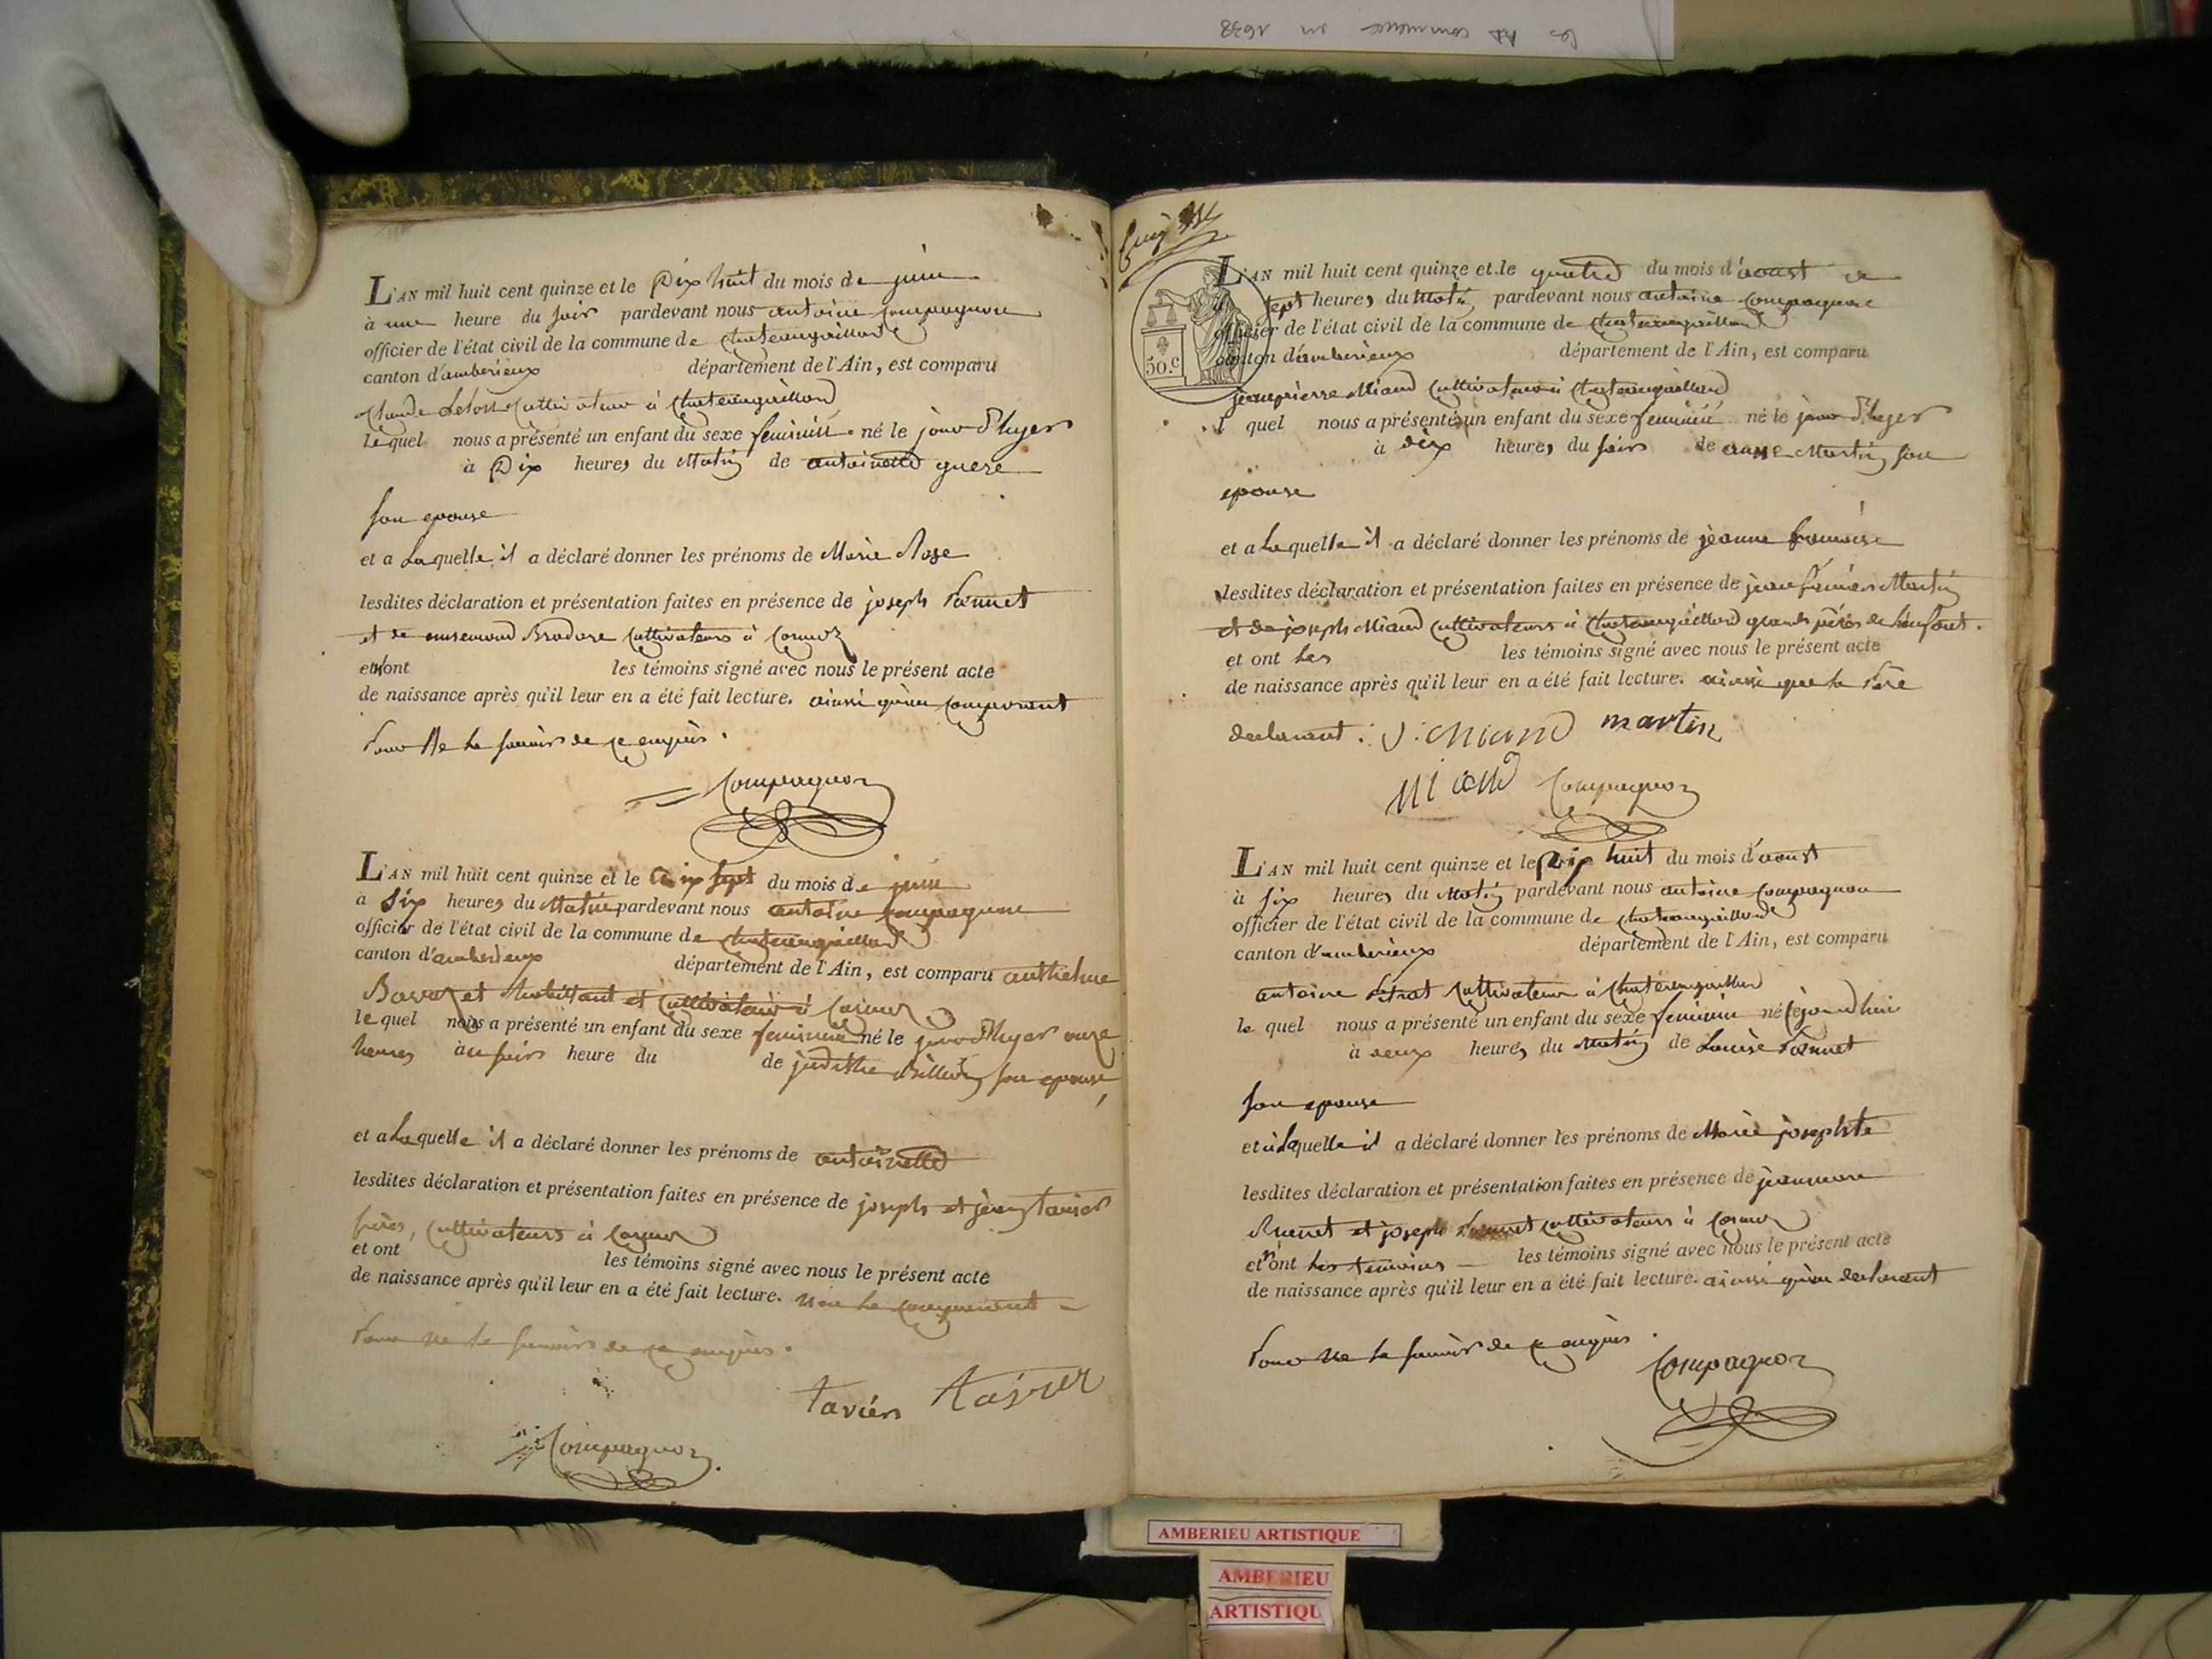 les AD commence en 1638
L'AN mil huit cent quinze et le Dix huit du mois de juin
à une heure du soir pardevant nous antoine Compagnon
officier de l'état civil de la commune de Chateaugaillard
canton d'amberieux département de l'Ain, est comparu
Claude cultivateur à Chateaugaillard
Lequel nous a présenté un enfant du sexe feminin né le jour d'hyer
à Dix heures du Matin de antoinette guere
son epouse
et a Laquelle il a déclaré donner les prénoms de Marie Rose
lesdites déclaration et présentation faites en présence de joseph
et de Brodore cultivateurs à Cormoz
et n'ont les témoins signé avec nous le présent acte
de naissance après qu'il leur en a été fait lecture. ainsi que le comparant
Pour Ne le savoir de ce enquis.
Compagnon
L'AN mil huit cent quinze et le dix sept du mois de juin
à six heures du Matin pardevant nous antoine Compagnon
officier de l'état civil de la commune de Chateaugaillard
canton d'amberieux département de l'Ain, est comparu anthelme
Bavozet habittant et cultivateur à Cormoz
lequel nous a présenté un enfant du sexe feminin né le jour d'hyer onze
heures au soir heure du de judithe Billion son epouse,
et a Laquelle il a déclaré donner les prénoms de antoinette
lesdites déclaration et présentation faites en présence de joseph et jean tavier
frères, cultivateurs à Cormoz
et ont les témoins signé avec nous le présent acte
de naissance après qu'il leur en a été fait lecture. non le comparant
Pour ne le savoir de ce enquis.
taviers tavier
Compagnon
50.c
L'AN mil huit cent quinze et le quatre du mois d'aoust
à sept heures du Matin pardevant nous antoine Compagnon
officier de l'état civil de la commune de Chateaugaillard
canton d'amberieux département de l'Ain, est comparu
jean pierre Miand cultivateur à Chateaugaillard
l quel nous a présenté un enfant du sexe feminin né le jour d'hyer
à dix heures du soir de anne Martin son
epouse
et a Laquelle il a déclaré donner les prénoms de jeanne francoise
lesdites déclaration et présentation faites en présence de jean Martin
et de joseph Miand cultivateurs à Chateaugaillard grands pères de l'enfant.
et ont les les témoins signé avec nous le présent acte
de naissance après qu'il leur en a été fait lecture. ainsi que le Père
declarant. J: Miand martin
Miand Compagnon
L'AN mil huit cent quinze et le Dix huit du mois d'aoust
à six heures du Matin pardevant nous antoine Compagnon
officier de l'état civil de la commune de Chateaugaillard
canton d'amberieux département de l'Ain, est comparu
antoine cultivateur à Chateaugaillard
le quel nous a présenté un enfant du sexe feminin né cejourd'hui
à deux heures du Matin de Louise
son epouse
et à Laquelle il a déclaré donner les prénoms de Marie josephte
lesdites déclaration et présentation faites en présence de
et joseph cultivateurs à Cormoz
et n'ont les temoins les témoins signé avec nous le présent acte
de naissance après qu'il leur en a été fait lecture. ainsi que le declarant
Pour Ne le savoir de ce enquis.
Compagnon
AMBERIEU ARTISTIQUE
AMBERIEU
ARTISTIQU